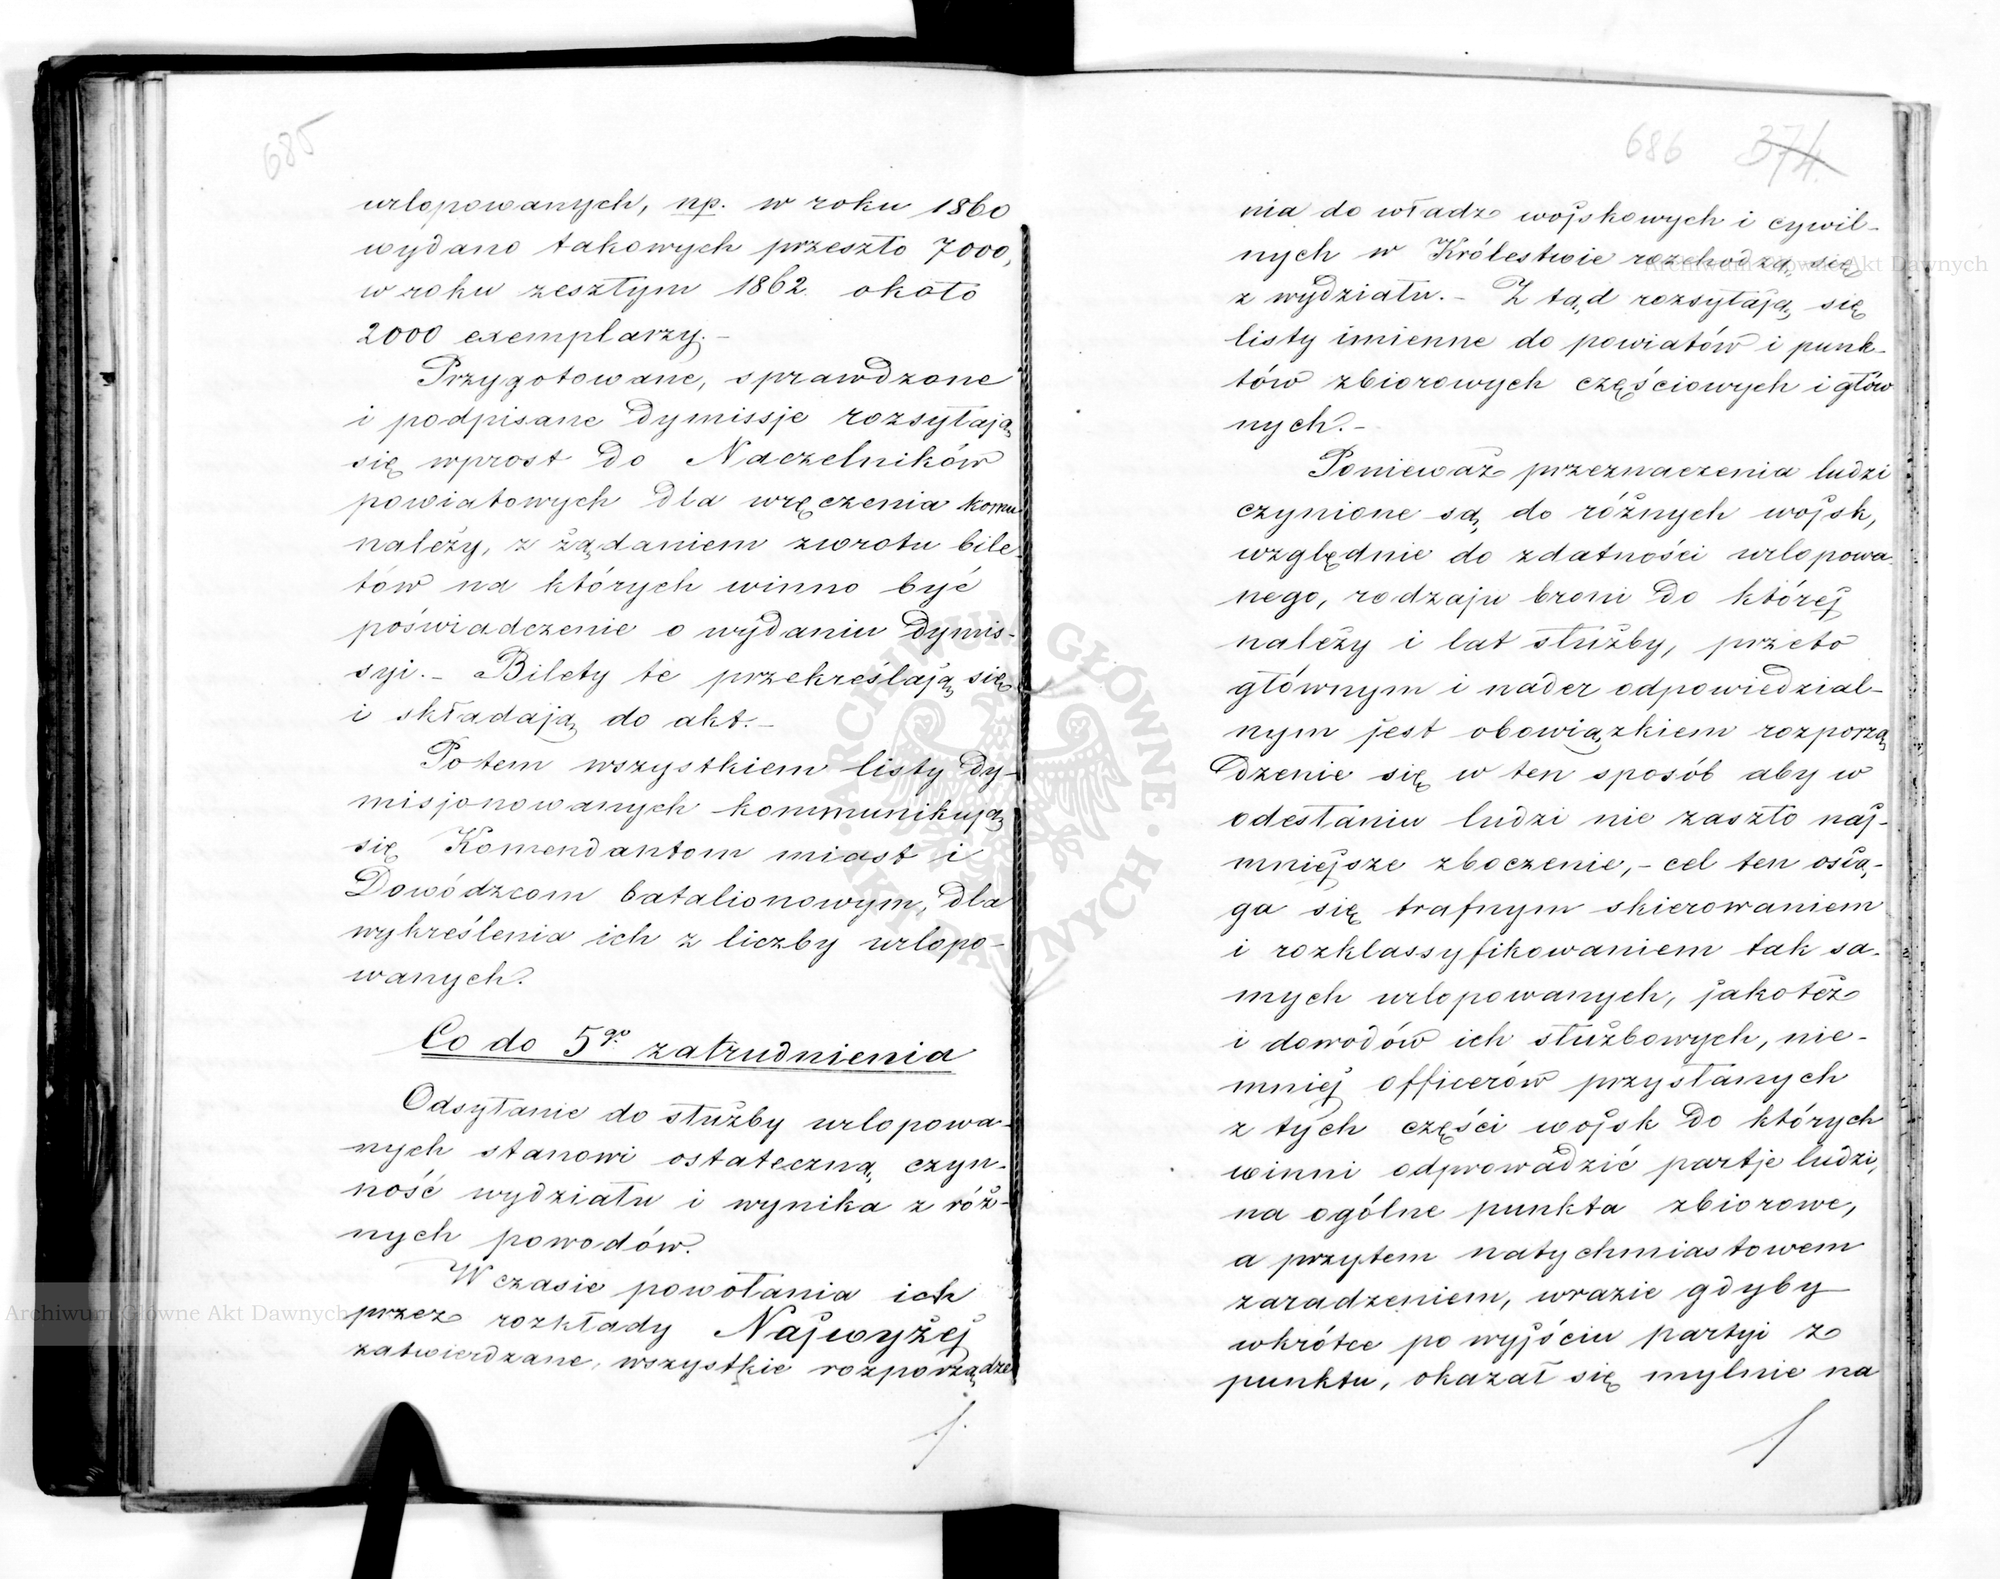 685
urlopowanych, np. w roku 1860
wydano takowych przeszło 7000,
w roku zeszłym 1862. około
2000 exemplarzy.–
Przygotowane, sprawdzone
i podpisane Dymissje rozsyłają
się wprost do Naczelników
powiatowych dla wręczenia komu
należy, z żądaniem zwrotu bile-
tów na których winno być
poświadczenie o wydaniu Dymis-
syi.– Bilety te przekreślają się
i składają do akt.–
Potem wszystkiem listy Dy-
misjonowanych kommunikują
się Komendantom miast i
Dowódzcom batalionowym, dla
wykreślenia ich z liczby urlopo-
wanych.
Co do 5go zatrudnienia
Odsyłanie do służby urlopowa-
nych stanowi ostateczną czyn-
ność wydziału i wynika z róż-
nych powodów.
W czasie powołania ich
przez rozkłady Najwyżej
zatwierdzane, wszystkie rozporządze
686 374.
nia do władz wojskowych i cywil-
nych w Królestwie rozchodzą się
z wydziału.– Z tąd rozsyłają się
listy imienne do powiatów i punk-
tów zbiorowych częściowych i głów
nych.–
Ponieważ przeznaczenia ludzi
czynione są do różnych wojsk,
względnie do zdatności urlopowa-
nego, rodzaju broni do której
należy i lat służby, przeto
głównym i nader odpowiedzial-
nym jest obowiązkiem rozporzą
dzenie się w ten sposób aby w
odesłaniu ludzi nie zaszło naj-
mniejsze zboczenie,– cel ten osią-
ga się trafnym skierowaniem
i rozklassyfikowaniem tak sa-
mych urlopowanych, jakoteż
i dowodów ich służbowych, nie-
mniej officerów przysłanych
z tych części wojsk do których
winni odprowadzić partje ludzi,
na ogólne punkta zbiorowe,
a przytem natychmiastowem
zaradzeniem, wrazie gdyby
wkrótce po wyjściu partyi z
punktu, okazał się mylnie na
Archiwum Główne Akt Dawnych
Archiwum Główne Akt Dawnych
ARCHIWUM GŁÓWNE AKT DAWNYCH